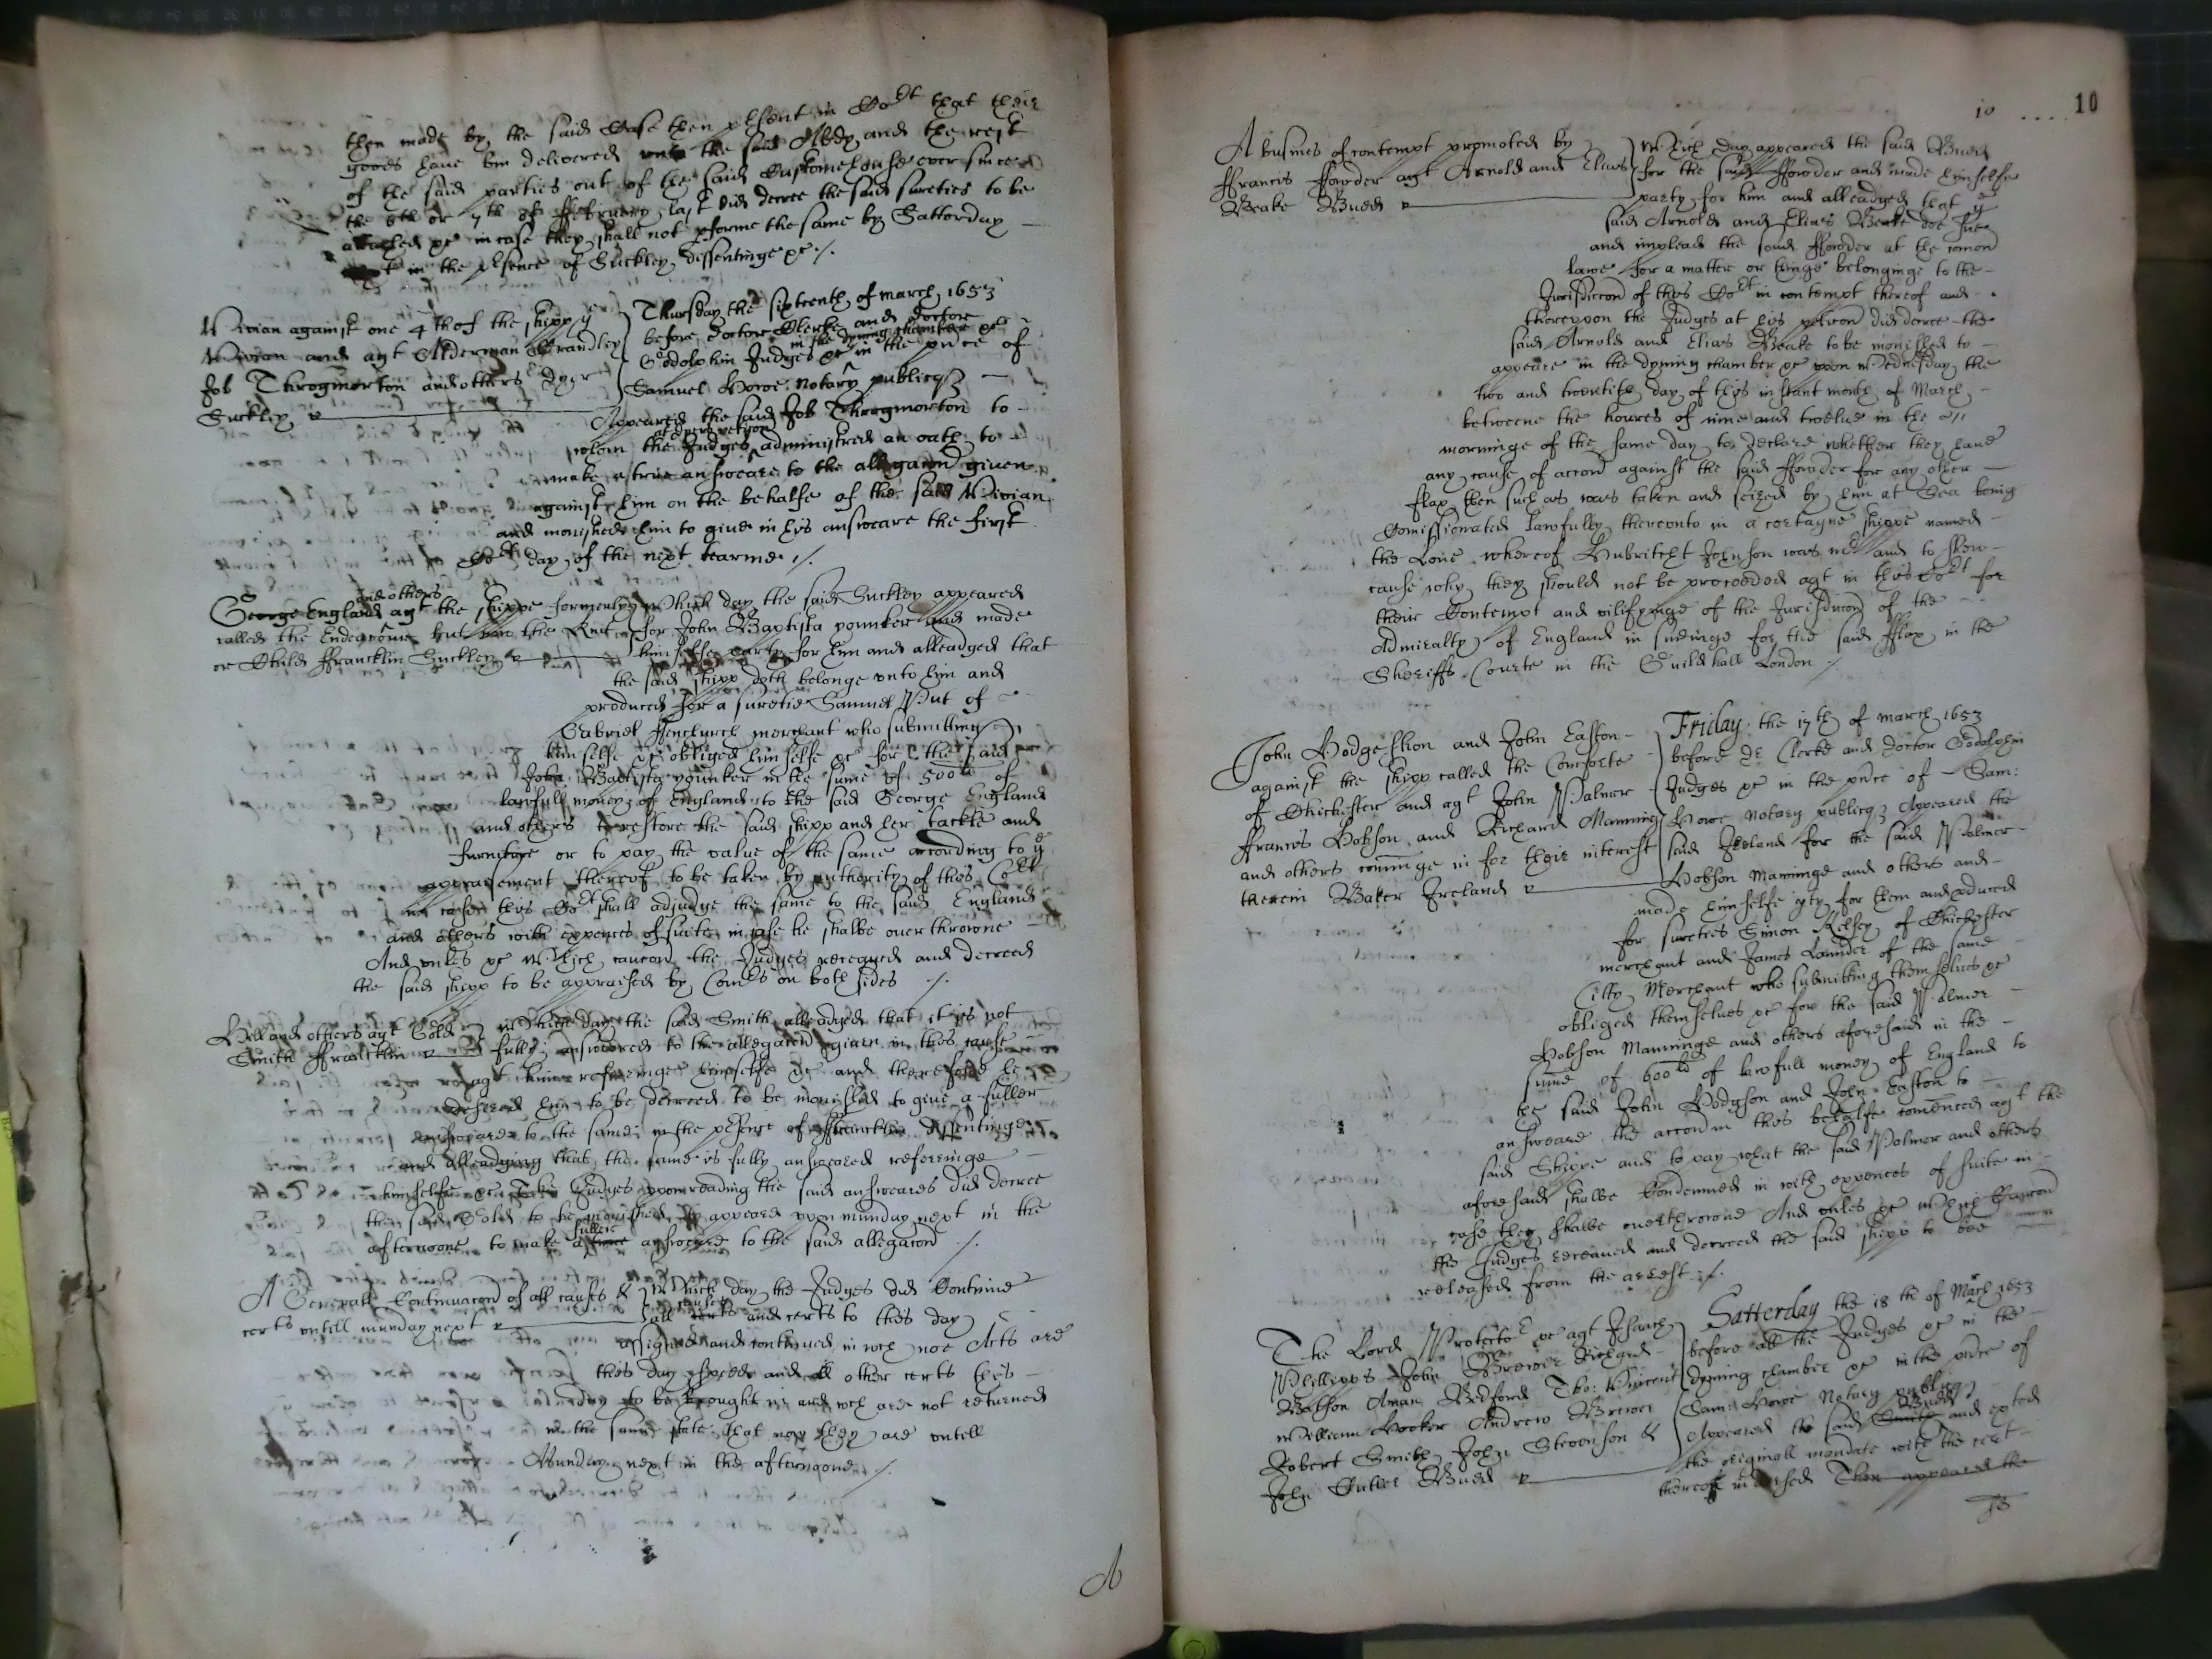 then made by the said Case then pñsent in Co:rt that their
goods have bin delivered unto the said Alkdy and the rest
of the said parties out of the said Customehouse ever since
the 6th or 7th of ffebruary last did decree the said sureties to be
attached &c in case they shall not pforme the same by Satturday
in the pñsence of Suckley dissentinge &c ./.
Vivian against one 4th of the shipp ye
Vivian and agt Alderman Frandley
Job Throgmorton and others dyer
Suckley
Thursday the sixteenth of march 1653
before doctor Clerke and doctor
in the dyning chamber &c
Godolphin Judges &c in the pnce of
Samuel Howe notary publicq
Appeared the said Job Throgmorton to
at dyers peticon
whom the Judges administred an oath to
make a true answeare to the allegacon given
against him on the behalfe of the said Vivian
and monished him to give in his answeare the first
Co:rt day of the next tearme ./.
and others
George England agt the shippe formerly
called the Endeavour but now the
or Childe ffrancklin Suckley
Which day the said Suckley appeared
for John Baptista younker and made
himselfe party for him and alleadged that
the said shipp doth belonge unto him and
produced for a suretie Samuel Put of
Gabriel ffenchurch merchant who submitting
himselfe &c obliged himselfe &c for the said
John Baptista younker in the sume of 500li of
lawfull money of England to the said George England
and others to restore the said shipp and her tackle and
furniture or to pay the value of the same according to ye
appraisement thereof to be taken by authority of this Co:rt
in case this Co:rt shall adjudge the same to the said England
and others with expences of suite in case he shalbe overthrowne
And unles &c Which caucon the Judges receaved and decreed
the said shipp to be appraised by Comrs on both sides ./.
Hill and others agt Gold
Smith ffrancklin
Which day the said Smith alleadged that it is not
fully answeared to the allegacon given in this cause
agt him referringe himselfe &c and therefore he
desired him to be decreed to be monished to give a fuller
answeare to the same in the pñsence of ffrancklin dissentinge
and alleadging that the same is fully answeared referringe
himselfe &c The Judges upon reading the said answeares did decree
the said Gold to be monished to appeare upon munday next in the
fuller
afternoone to make a answeare to the said allegacon ./.
A Generall Continuacon of all causes &
certs untill munday next
Which day the Judges did Continue
causes
all and certs to this day
assigned and continued in wch noe Acts are
this day spedd and all other certs this
day to be brought in and wch are not returned
in the same state that now they are untill
Munday next in the afternoone ./.
10 .... 10
A busines of contempt promoted by
ffrancis ffowder agt Arnold and Elias
Beake Budd
Which day appeared the said Budd
for the said ffowder and made himselfe
party for him and alleadged that ye
said Arnold and Elias Beake doe sue
and implead the said ffowder at the comon
lawe for a matter or thinge belonginge to the
Jurisdiccon of this Co:rt in contempt thereof and
thereupon the Judges at his peticon did decree the
said Arnold and Elias Beake to be monished to
appeare in the dyning chamber &c upon Wednesday the
two and twentith day of this instant month of March
betweene the houres of nine and twelve in the
morninge of the same day to declare whether they have
any cause of accon against the said ffowder for any other
flax then such as was taken and seized by him at Sea being
Comissionated lawfully thereunto in a certayne shippe named
the Love whereof Hubritcht Johnson was mr and to shew
cause why they should not be proceeded agt in this Co:rt for
their Contempt and vilifyinge of the Jurisdiccon of the
Admiralty of England in sueinge for the said fflax in the
Sheriffs Courte in the Guildhall London ./.
John Hodgeshon and John Easton
against the shipp called the Comforte
of Chichester and agt John Palmer
ffrancis Hobson and Richard Manning
and others cominge in for their interest
therein Baker Ireland
Friday the 17th of march 1653
before Dr Clerke and doctor Godolphin
Judges &c in the pnce of Sam:
Howe notary publicq Appeared the
said Ireland for the said Palmer
Hobson Manninge and others and
made himselfe pty for them and pduced
for sureties Simon Kelsey of Chichester
merchant and James Launder of the same
Citty Merchant who submitting themselves &c
obliged themselves &c for the said Palmer
Hobson Manninge and others aforesaid in the
sume of 600li of lawfull money of England to
the said John Hodgson and John Easton to
answeare the accon in this behalfe comenced agt the
said Shippe and to pay what the said Palmer and others
aforesaid shalbe Condemned in with expences of suite in
case they shalbe overthrowne And unles &c Which Caucon
the Judges receaved and decreed the said shipp to bee
released from the arrest ./.
The Lord Protector &c agt Isaack
Phillipps John Brewer Richard
Batson Aman Bedford Tho: Vincent
William Hooker Andrew Brewer
Robert Smith John Stevenson &
John Cutler Budd
Satterday the 18th of March 1653
before all the Judges &c in the
dyning chamber &c in the pnce of
Sam: Howe Notary publicq
Budd
Appeared the said Smith and exted
the originall mandate with the cert
thereof indorsed Then appeared the